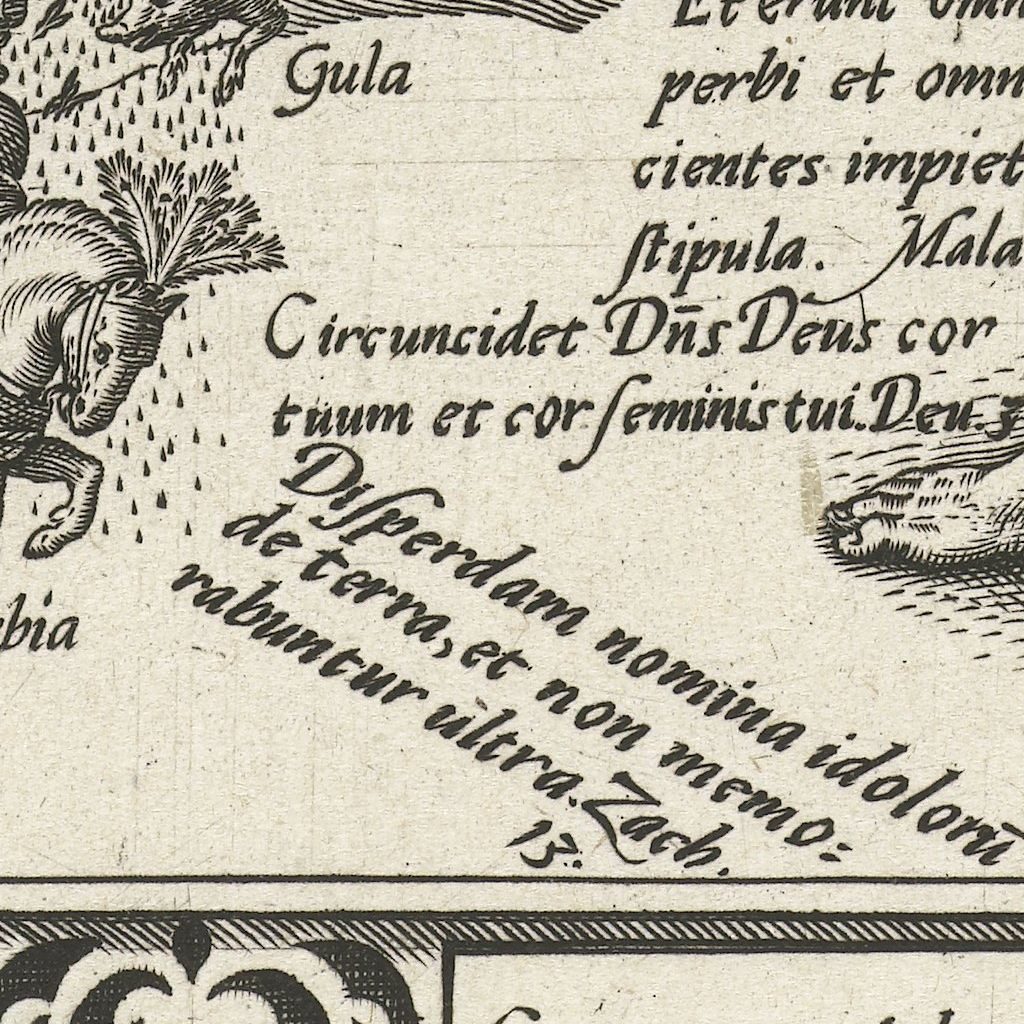 Gula
Et erunt omn
perbi et omn
cientes impiet
ſtipula. Mala
Circuncidet Dñs Deus cor
tuum et cor ſeminis tui. Deu. 3
bia
Diſperdam nomina idolorū
de terra, et non memo:
rabuntur ultra. Zach.
13: